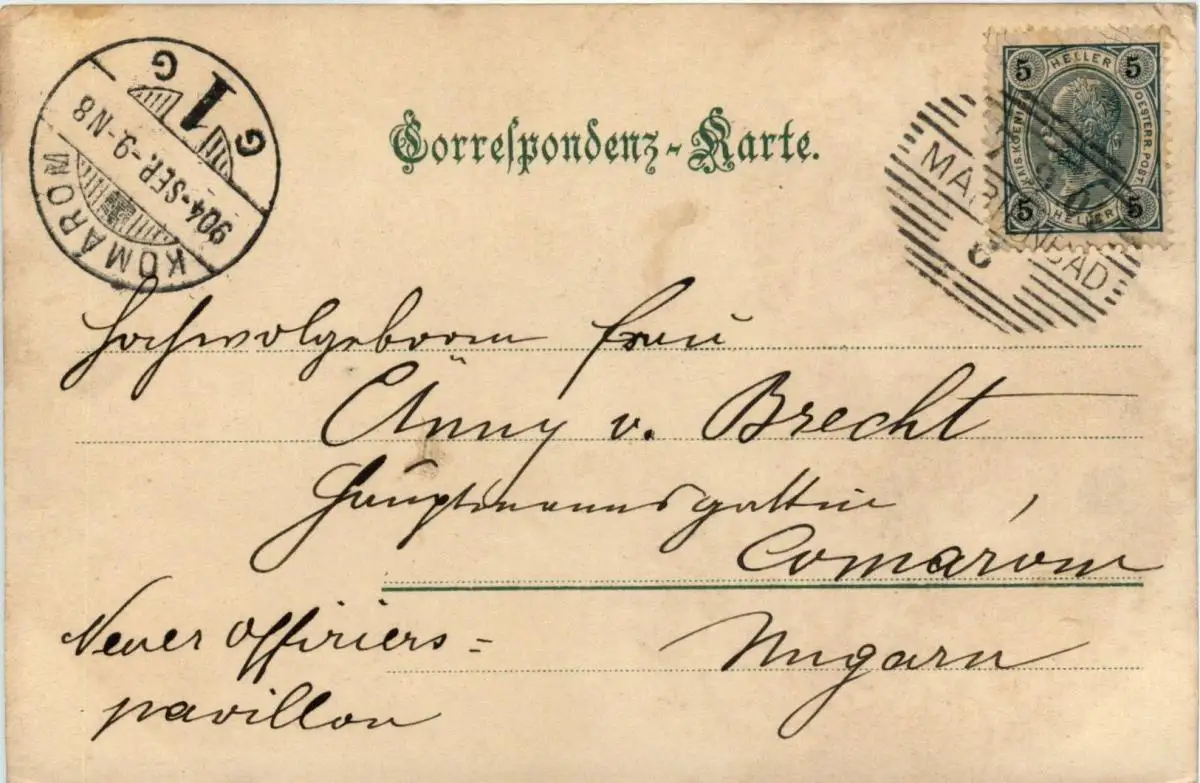 Correspondenz-Karte.
KOMÁROM
904-SEP.-9.-N8
1
G G
5 HELLER 5
KAIS. KOENIGL. OESTERR. POST
5 HELLER 5
MARIENBAD
6
Hochwolgeboren Frau
Änny v. Brecht
Hauptmannsgattin,
Comárom
Ungarn
Neuer Offiziers=
pavillon